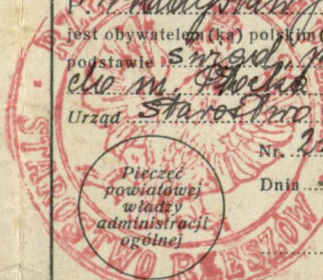 P. Władysław
jest obywatelem (ką) polskim (
podstawie świad.
do m. Płocka
Urząd Starostwo
Nr. 2
Dnia
Pieczęć
powiatowej
władzy
administracji
ogólnej
STAROSTWO RZESZOW